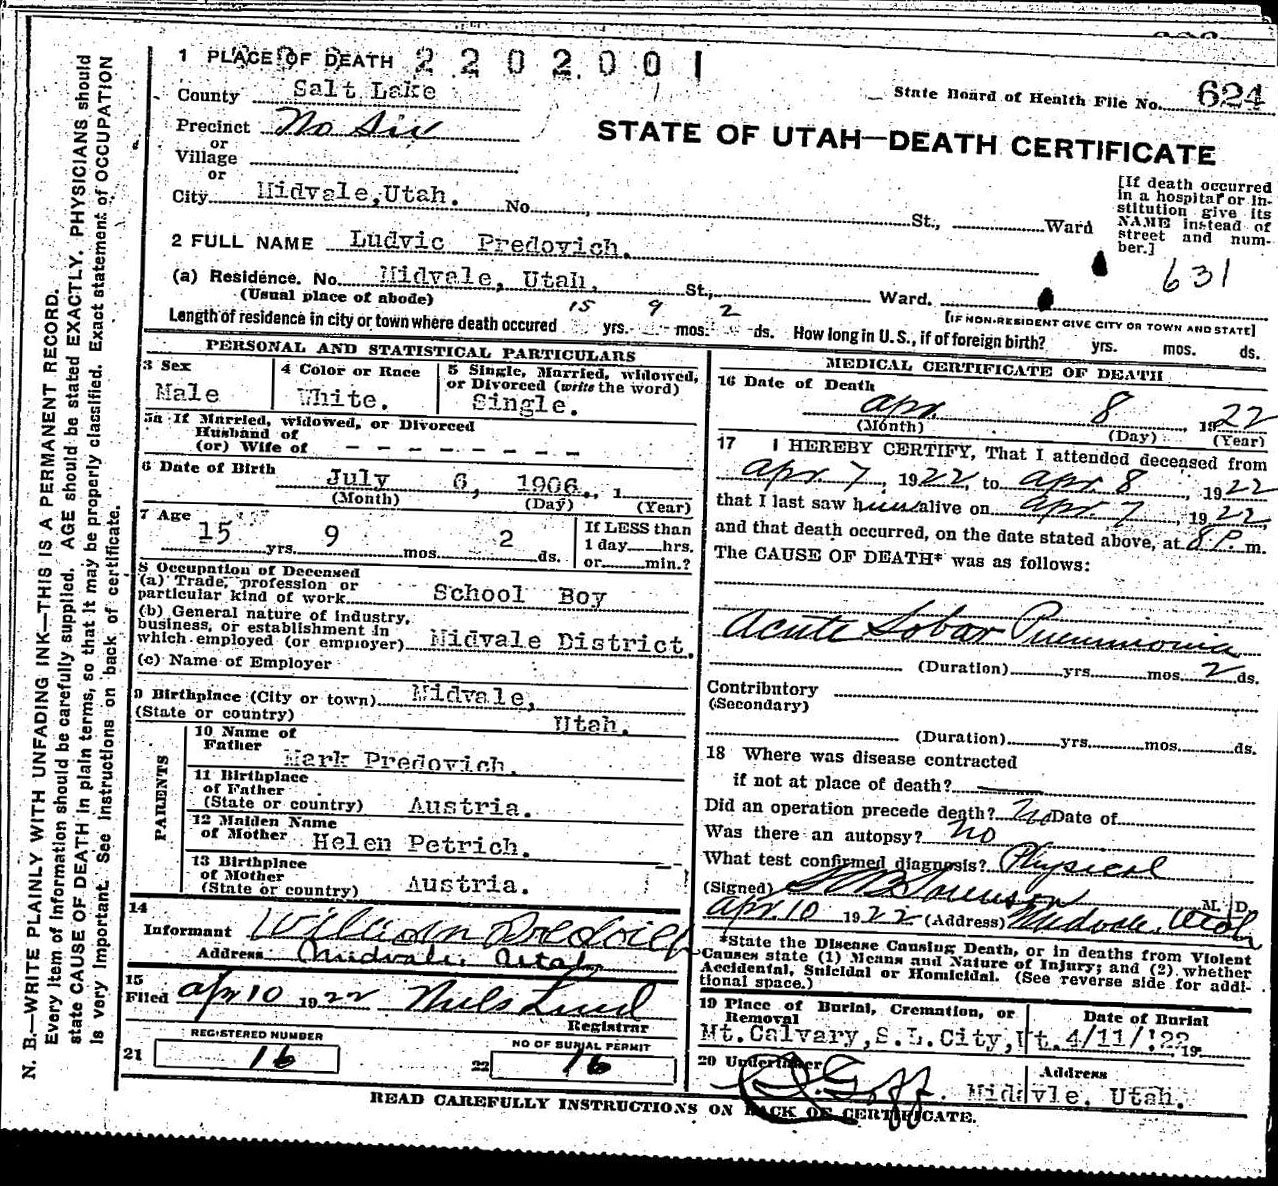 1 PLACE OF DEATH 2202001
County Salt Lake
State Board of Health File No. 624
Precinct No Six
or
Village
or
City Midvale, Utah. No. , St., Ward
STATE OF UTAH—DEATH CERTIFICATE
[If death occurred in a hospital or institution give its NAME instead of street and number.]
2 FULL NAME Ludvic Predovich.
631
(a) Residence. No. Midvale, Utah. St., Ward.
(Usual place of abode)
[IF NON-RESIDENT GIVE CITY OR TOWN AND STATE]
Length of residence in city or town where death occured 15 yrs. 9 mos. 2 ds. How long in U. S., if of foreign birth? yrs. mos. ds.
PERSONAL AND STATISTICAL PARTICULARS
3 Sex
Male
4 Color or Race
White.
5 Single, Married, widowed, or Divorced (write the word)
Single.
5a If Married, widowed, or Divorced
Husband of
(or) Wife of - - - - - - - -
6 Date of Birth July 6, 1906., 1
(Month) (Day) (Year)
7 Age
15 yrs. 9 mos. 2 ds.
If LESS than
1 day hrs.
or min.?
8 Occupation of Deceased
(a) Trade, profession or
particular kind of work School Boy
(b) General nature of industry,
business, or establishment in
which employed (or employer) Midvale District.
(c) Name of Employer
9 Birthplace (City or town) Midvale,
(State or country) Utah.
PARENTS
10 Name of
Father Mark Predovich.
11 Birthplace
of Father
(State or country) Austria.
12 Maiden Name
of Mother Helen Petrich.
13 Birthplace
of Mother
(State or country) Austria.
14
Informant William Predovich
Address Midvale, Utah
15
Filed Apr 10 1922 Niels Lind
Registrar
REGISTERED NUMBER
21 16
NO OF BURIAL PERMIT
22 16
MEDICAL CERTIFICATE OF DEATH
16 Date of Death
Apr. 8, 1922
(Month) (Day) (Year)
17 I HEREBY CERTIFY, That I attended deceased from
Apr. 7, 1922, to Apr. 8, 1922
that I last saw him alive on Apr 7, 1922,
and that death occurred, on the date stated above, at 8 P. m.
The CAUSE OF DEATH* was as follows:
Acute Lobar Pneumonia
(Duration) yrs. mos. 2 ds.
Contributory
(Secondary)
(Duration) yrs. mos. ds.
18 Where was disease contracted
if not at place of death?
Did an operation precede death? No Date of
Was there an autopsy? No
What test confirmed diagnosis? Physical
(Signed) Sorenson M. D.
Apr. 10 1922 (Address) Midvale, Utah
*State the Disease Causing Death, or in deaths from Violent
Causes state (1) Means and Nature of Injury; and (2) whether
Accidental, Suicidal or Homicidal. (See reverse side for addi-
tional space.)
19 Place of Burial, Cremation, or
Removal
Mt. Calvary, S.L. City, Ut.
Date of Burial
4/11/'22 19
20 Undertaker
Goff.
Address
Midavle, Utah.
READ CAREFULLY INSTRUCTIONS ON BACK OF CERTIFICATE.
N. B.—WRITE PLAINLY WITH UNFADING INK—THIS IS A PERMANENT RECORD.
Every item of information should be carefully supplied. AGE should be stated EXACTLY. PHYSICIANS should
state CAUSE OF DEATH in plain terms, so that it may be properly classified. Exact statement of OCCUPATION
is very important. See instructions on back of certificate.